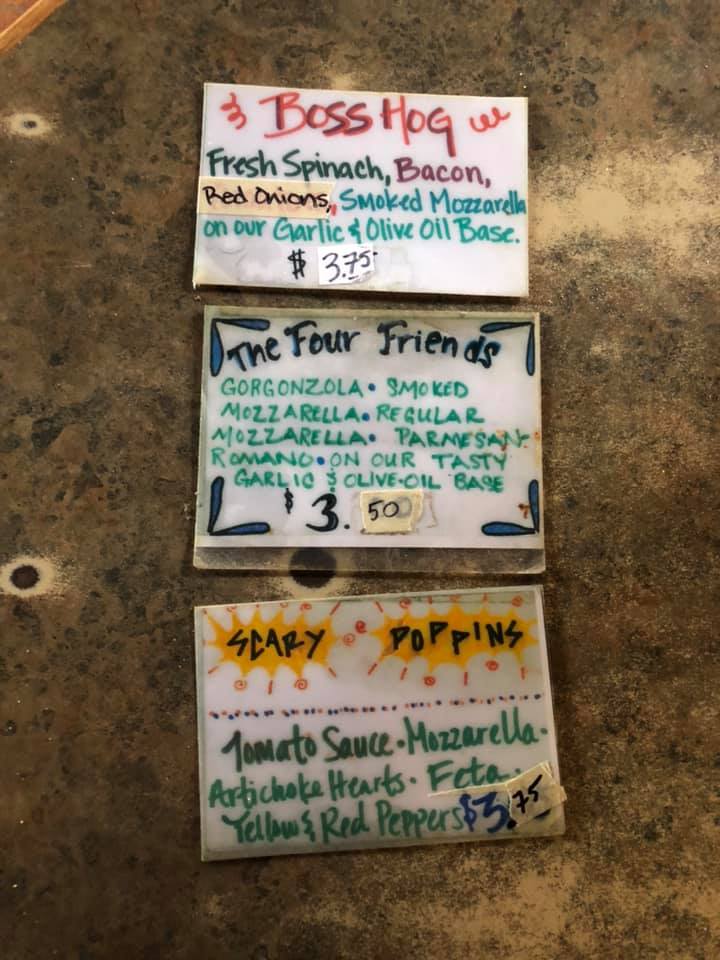 Boss Hog
Fresh Spinach, Bacon,
Red Onions, Smoked Mozzarella
on our Garlic & Olive Oil Base.
$ 3.75
The Four Friends
GORGONZOLA • SMOKED
MOZZARELLA • REGULAR
MOZZARELLA • PARMESAN-
ROMANO • ON OUR TASTY
GARLIC & OLIVE-OIL BASE
$ 3.50
SCARY POPPINS
Tomato Sauce • Mozzarella •
Artichoke Hearts • Feta •
Yellow & Red Peppers $3.75